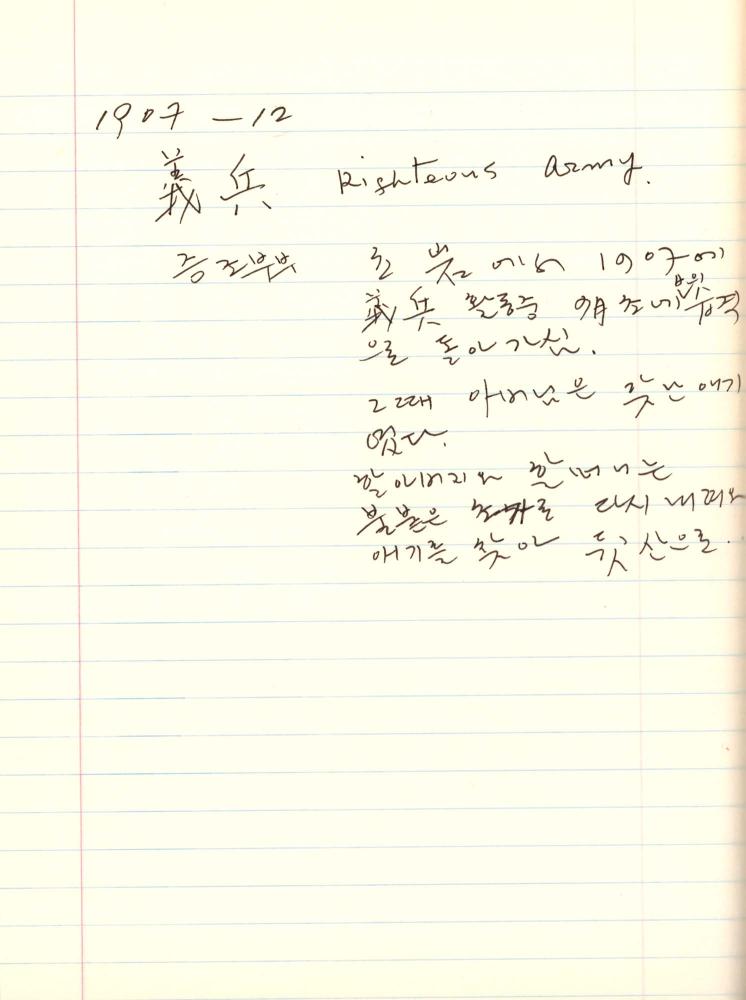 1907 - 12
義兵 Righteous Army.
증조부 에서 1907에
義兵 활동중 습격
으로 돌아가심.
그때 어머님은 갓난 애기
였다.
할아버지와 할머니는
불붙은 다시 내려와
애기를 찾아 뒷산으로.